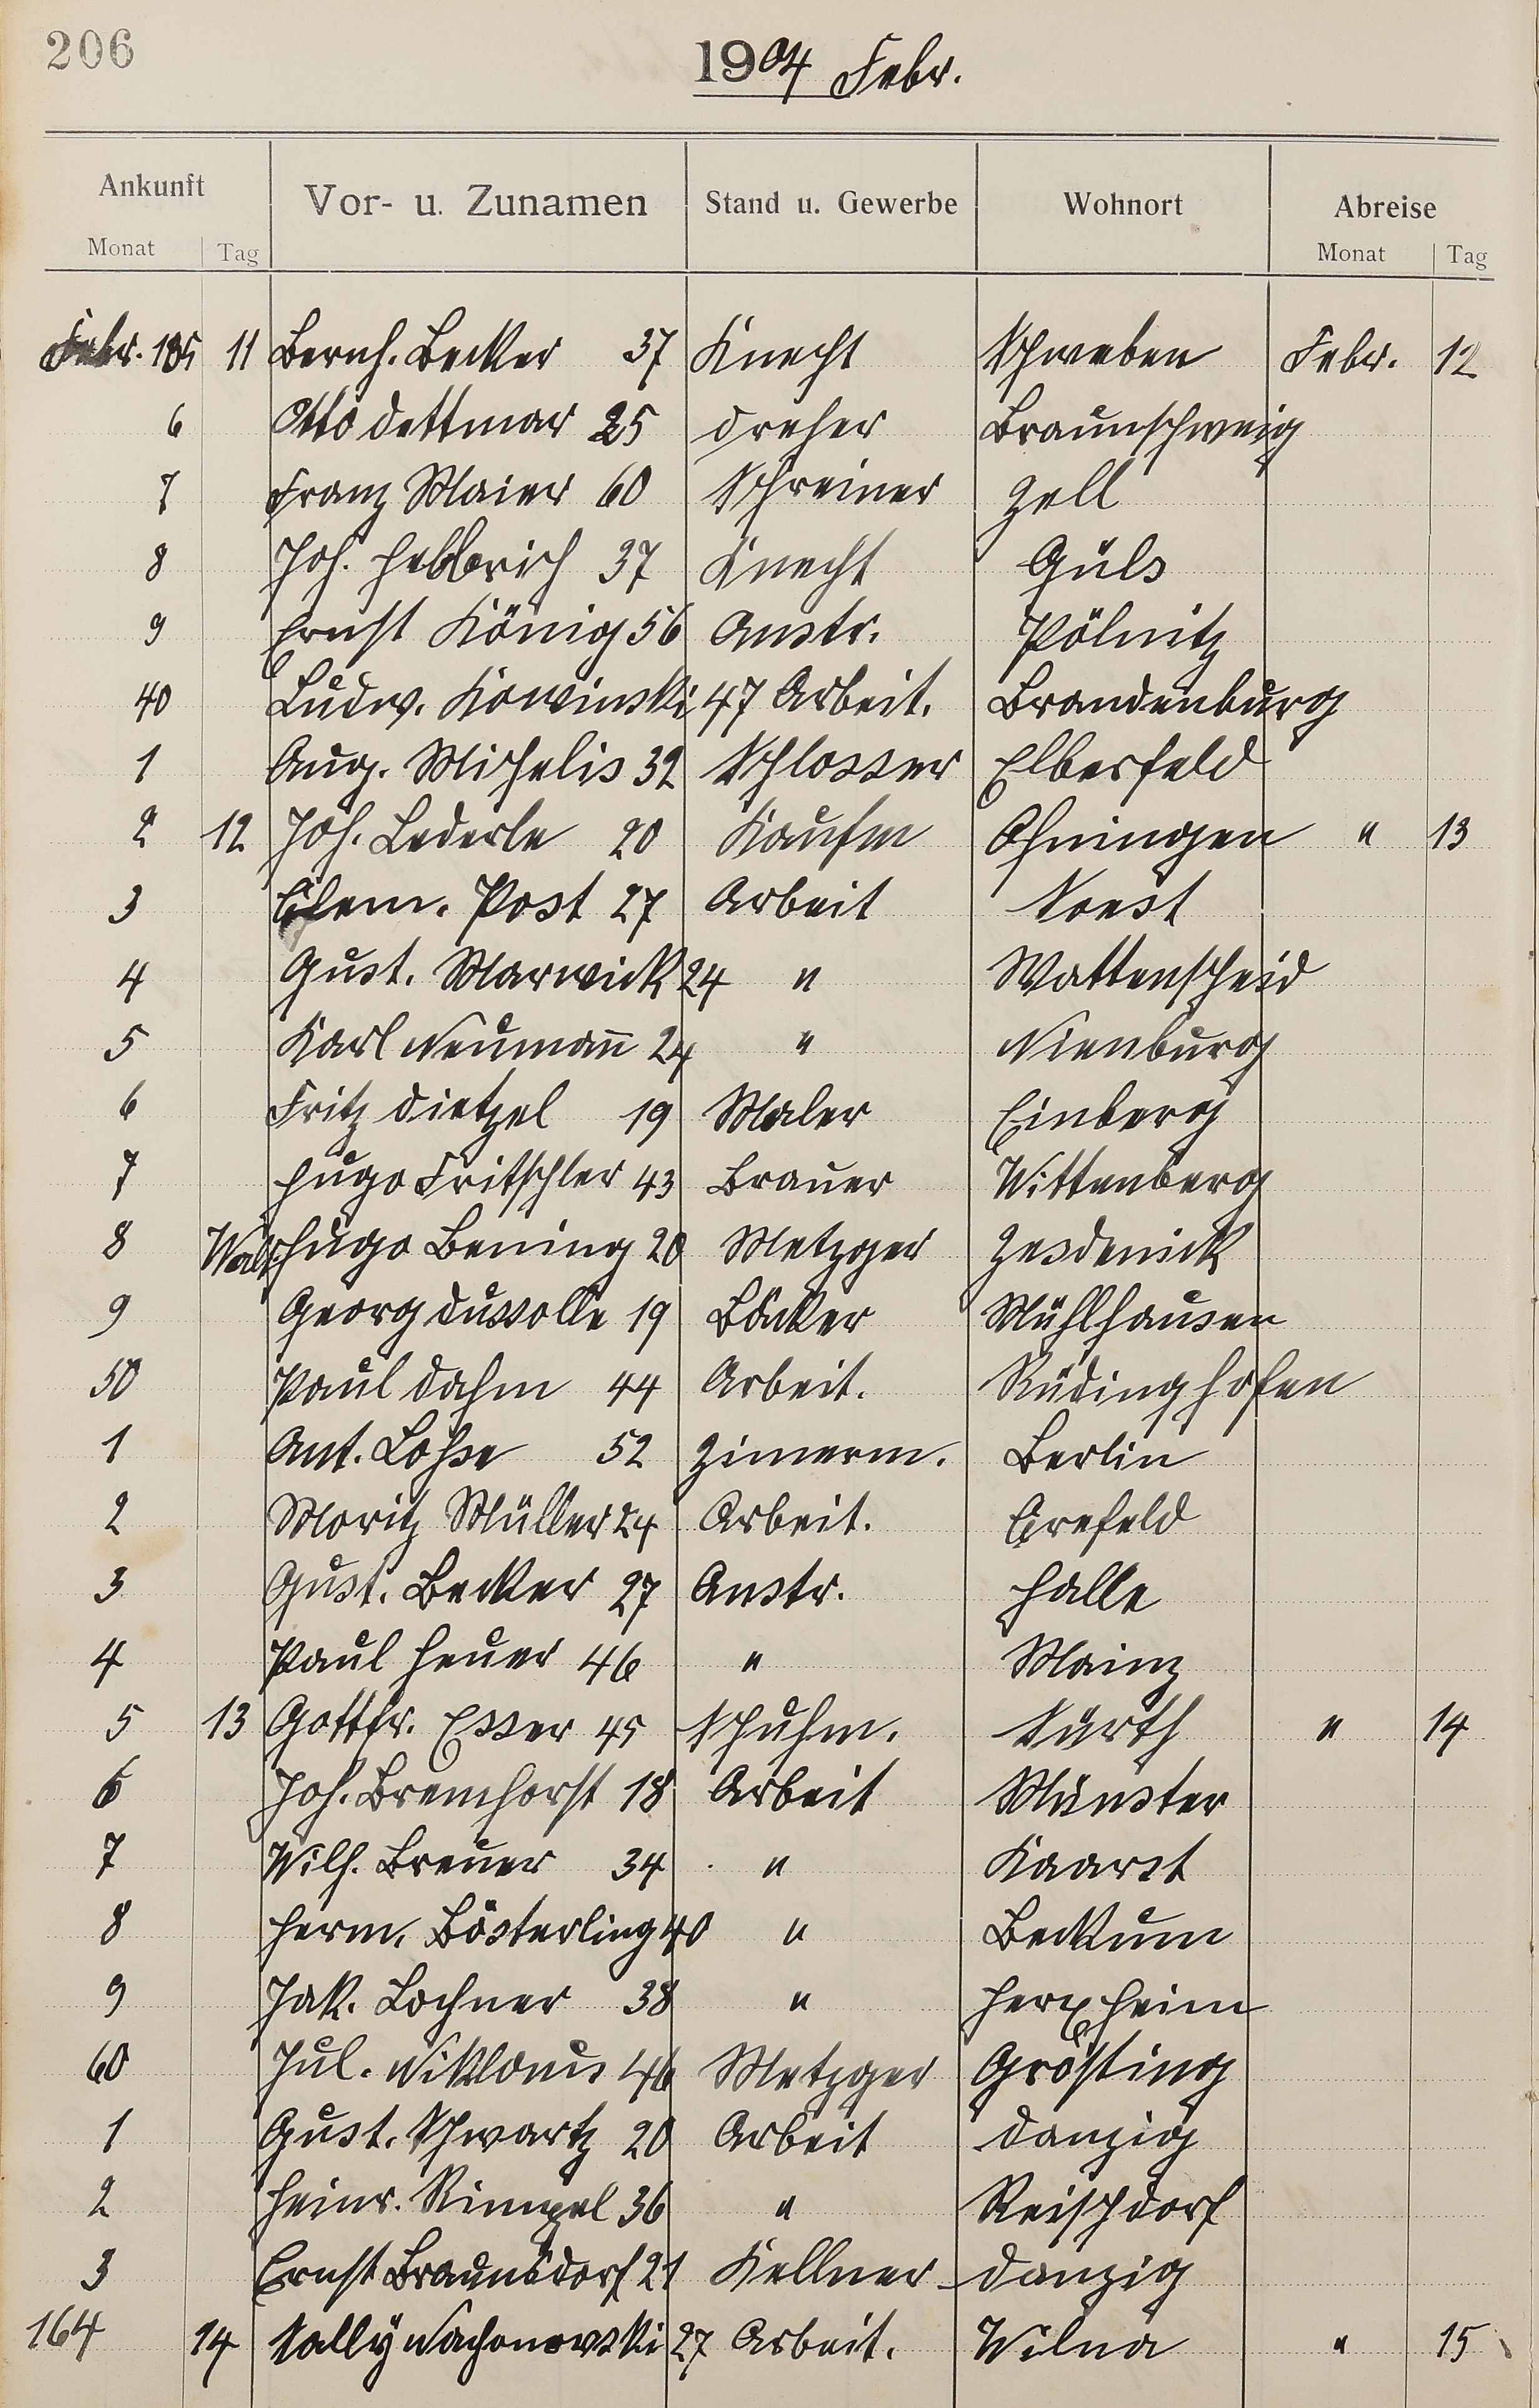 206
1904 Febr.
Ankunft Vor- u. Zunamen Stand u. Gewerbe Wohnort Abreise
Monat Tag Monat Tag
Febr. 135 11 Bernh. Becker 37 Knecht Schweben Febr. 12
6 Otto Dettmar 25 Dreher Braunschweig
7 Franz Maier 60 Schreiner Zell
8 Joh. Helbrich 37 Knecht Güls
9 Ernst König 56 Anstr. Pölnitz
40 Ludw. Kowinski 47 Arbeit. Brandenburg
1 Aug. Michelis 32 Schlosser Elberfeld
2 12 Joh. Lederle 20 Kaufm Ohningen " 13
3 Clem. Post 27 Arbeit Soest
4 Gust. Marwick 24 " Wattenscheid
5 Karl Neumann̄ 24 " Nienburg
6 Fritz Dietzel 19 Maler Einberg
7 Hugo Fritschler 43 Brauer Wittenberg
8 Walt Hugo Bening 20 Metzger Zesdenick
9 Georg Dussolle 19 Bäcker Mühlhausen
50 Paul Dahm 44 Arbeit. Rüdinghofen
1 Ant. Lohse 52 Zimerm. Berlin
2 Moritz Müller 24 Arbeit. Crefeld
3 Gust. Becker 27 Anstr. Halle
4 Paul Heuer 46 " Mainz
5 13 Gottfr. Esser 45 Schuhm. Sürth " 14
6 Joh. Bremhorst 18 Arbeit Münster
7 Wilh. Breuer 34 " Kaarst
8 Herm. Bösterling 40 " Beckum
9 Jak. Lochner 38 " Herxheim
60 Jul. Niklaus 46 Metzger Grösting
1 Gust. Schwartz 20 Arbeit Danzig
2 Heinr. Rimpel 36 " Reischdorf
3 Ernst Braunsdorf 21 Kellner Danzig
164 14 Sally Nachonowski 27 Arbeit. Wilna " 15